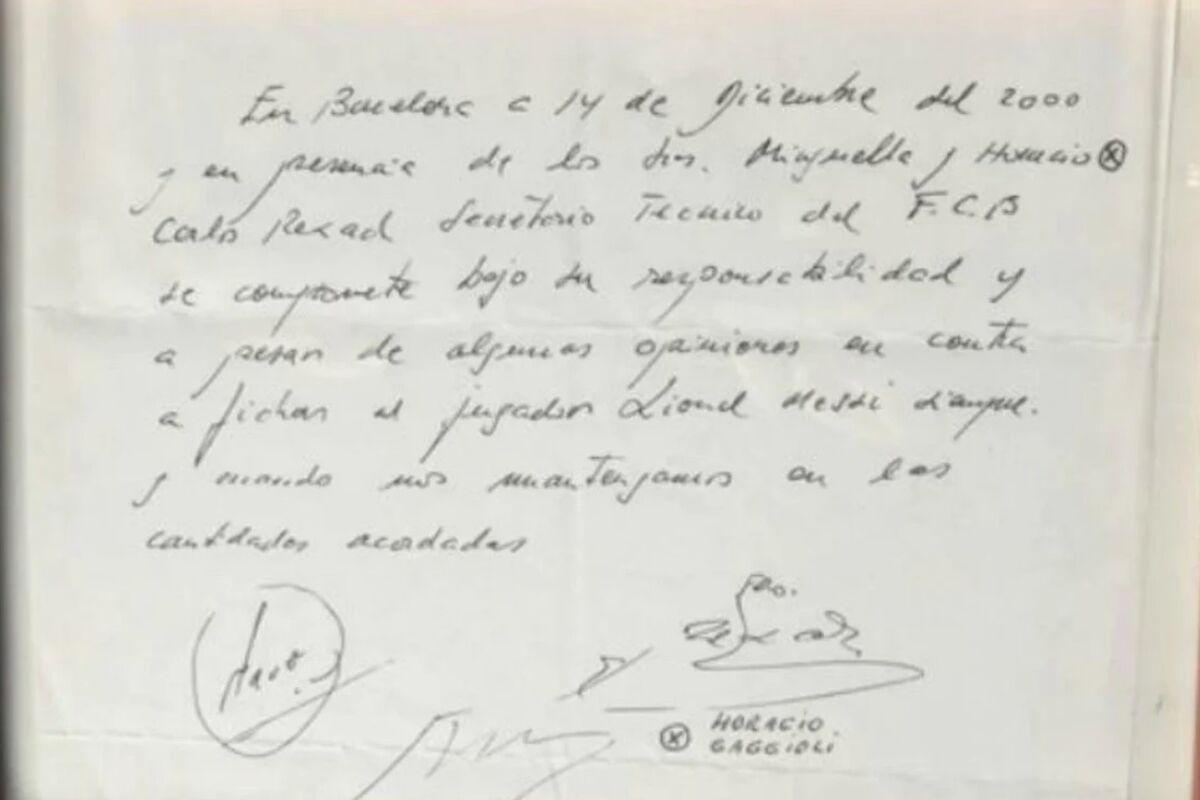 En Barcelona a 14 de Diciembre del 2000
y en presencia de los Srs. Minguella y Horacio ⊗
Carlos Rexach Secretario Tecnico del F.C.B
se compromete bajo su responsabilidad y
a pesar de algunas opiniones en contra
a fichar al jugador Lionel Messi
y cuando nos mantengamos en las
cantidades acordadas
Fdo.
Rexach
⊗ HORACIO
GAGGIOLI